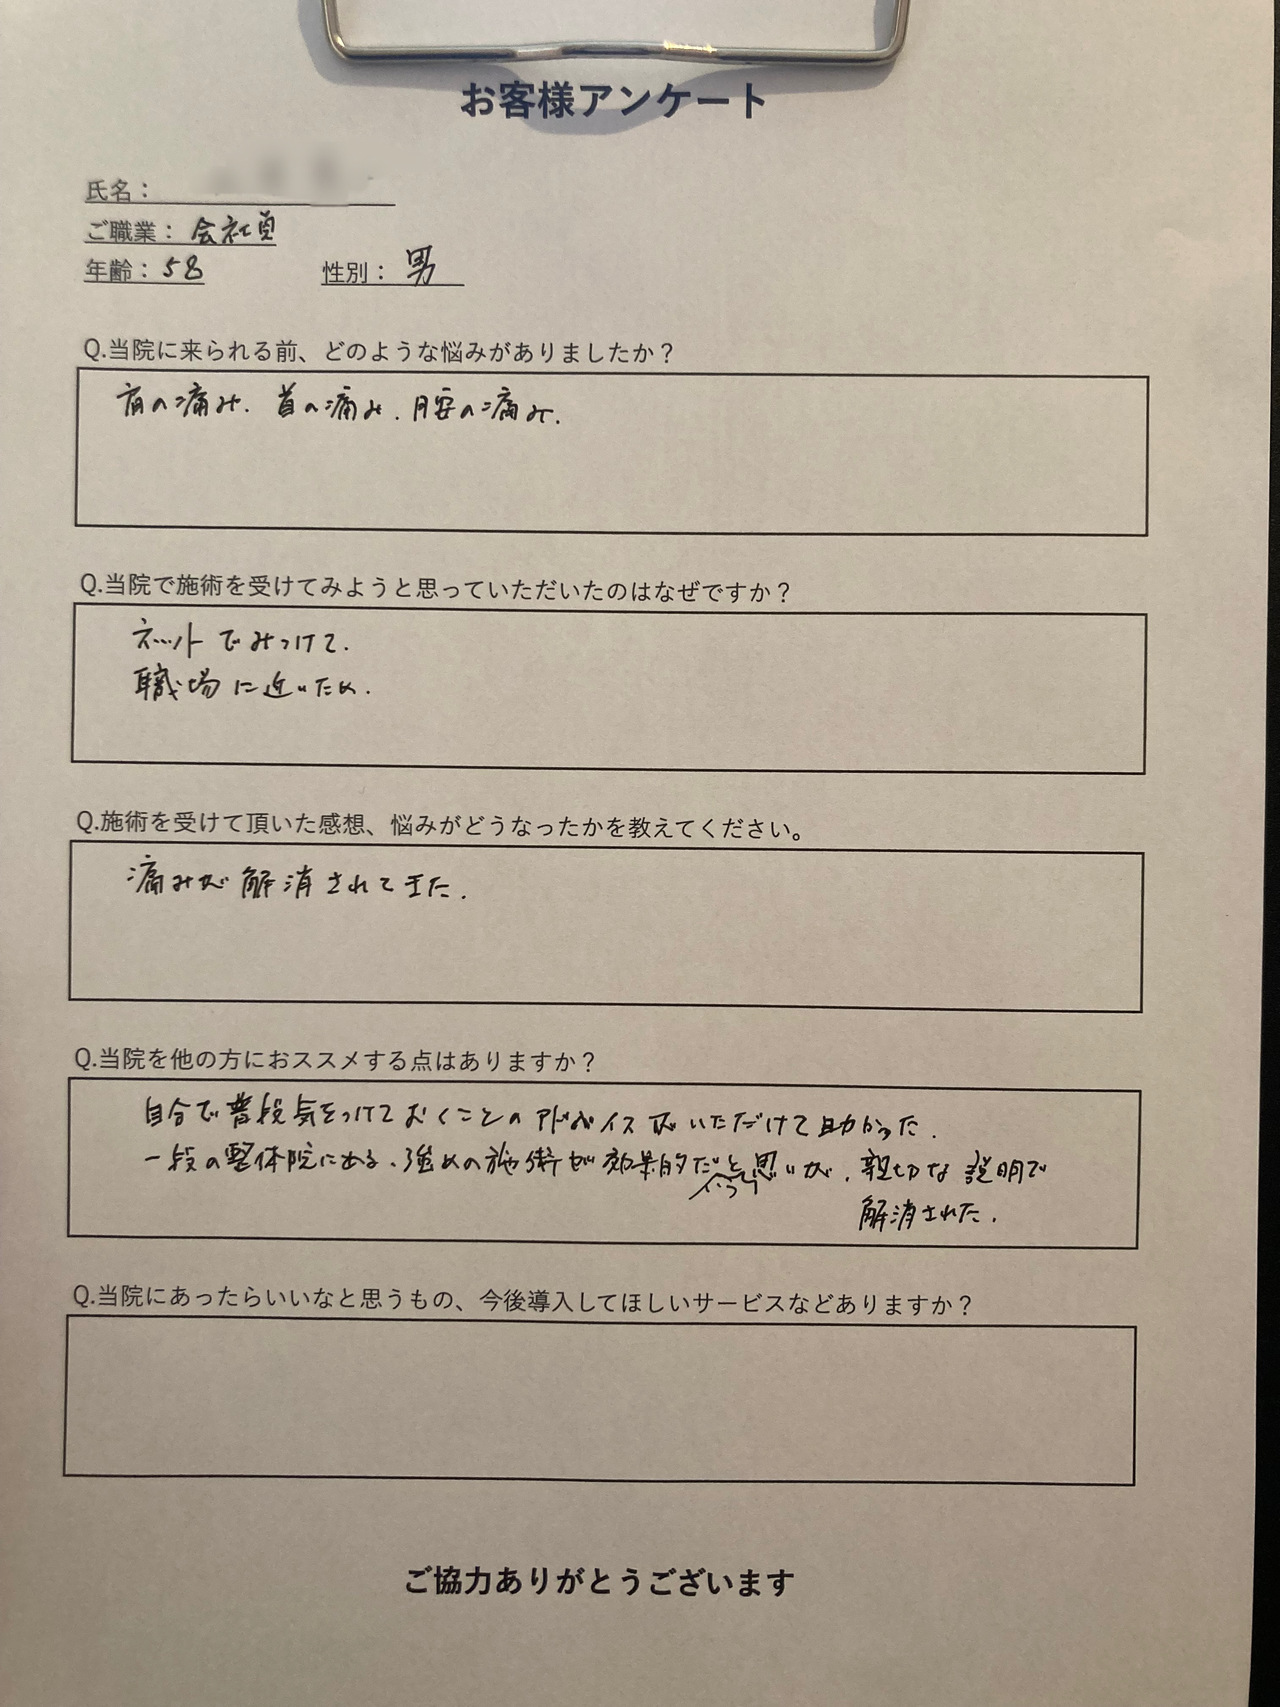 お客様アンケート
氏名：
ご職業： 会社員
年齢：58 性別： 男
Q.当院に来られる前、どのような悩みがありましたか？
肩の痛み. 首の痛み. 腰の痛み.
Q.当院で施術を受けてみようと思っていただいたのはなぜですか？
ネットでみつけて.
職場に近いため.
Q.施術を受けて頂いた感想、悩みがどうなったかを教えてください。
痛みが解消されてきた.
Q.当院を他の方におススメする点はありますか？
自分で普段気をつけておくことのアドバイスがいただけて助かった.
一般の整体院にある、強めの施術が効果的だと思いが、親切な説明で
解消された.
Q.当院にあったらいいなと思うもの、今後導入してほしいサービスなどありますか？
ご協力ありがとうございます